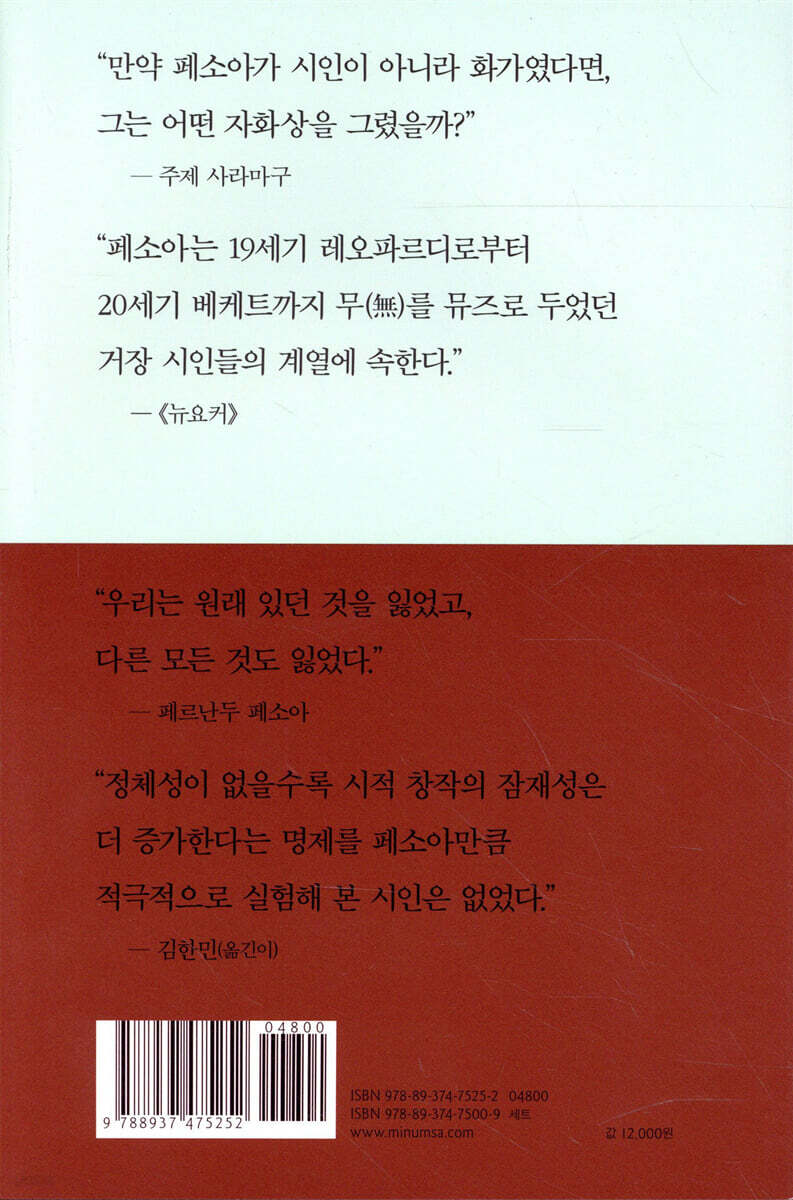 “만약 페소아가 시인이 아니라 화가였다면,
그는 어떤 자화상을 그렸을까?”
— 주제 사라마구
“페소아는 19세기 레오파르디로부터
20세기 베케트까지 무(無)를 뮤즈로 두었던
거장 시인들의 계열에 속한다.”
— 《뉴요커》
“우리는 원래 있던 것을 잃었고,
다른 모든 것도 잃었다.”
— 페르난두 페소아
“정체성이 없을수록 시적 창작의 잠재성은
더 증가한다는 명제를 페소아만큼
적극적으로 실험해 본 시인은 없었다.”
— 김한민(옮긴이)
04800
9 788937 475252
ISBN 978-89-374-7525-2 04800
ISBN 978-89-374-7500-9 세트
www.minumsa.com
값 12,000원